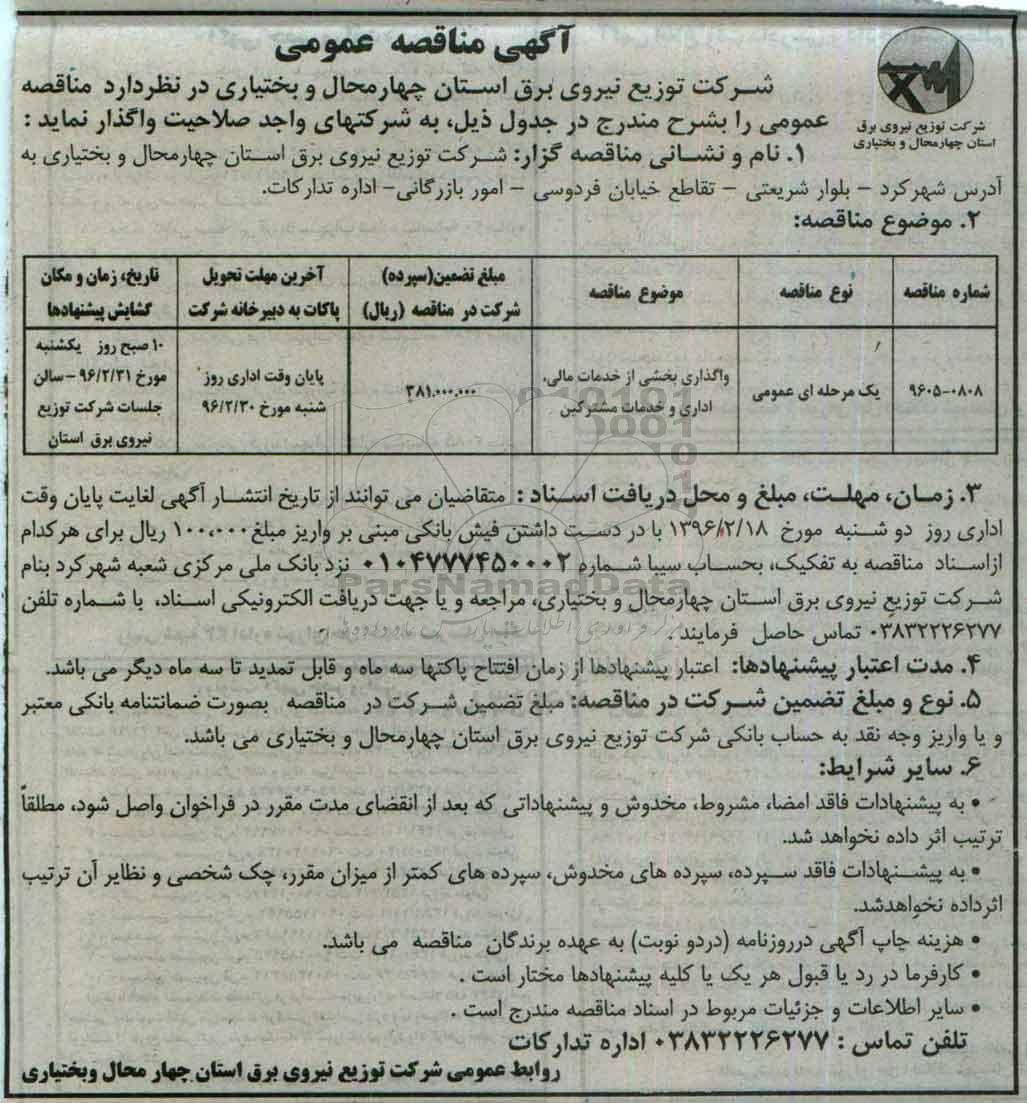 آگهی مناقصه عمومی
شرکت توزیع نیروی برق
استان چهارمحال و بختیاری
شرکت توزیع نیروی برق استان چهارمحال و بختیاری در نظردارد مناقصه
عمومی را بشرح مندرج در جدول ذیل، به شرکتهای واجد صلاحیت واگذار نماید :
۱. نام و نشانی مناقصه گزار: شرکت توزیع نیروی برق استان چهارمحال و بختیاری به
آدرس شهرکرد – بلوار شریعتی – تقاطع خیابان فردوسی – امور بازرگانی– اداره تدارکات.
۲. موضوع مناقصه:
شماره مناقصه
نوع مناقصه
موضوع مناقصه
مبلغ تضمین(سپرده)
شرکت در مناقصه (ریال)
آخرین مهلت تحویل
پاکات به دبیرخانه شرکت
تاریخ، زمان و مکان
گشایش پیشنهادها
۹۶۰۵-۰۸۰۸
یک مرحله ای عمومی
واگذاری بخشی از خدمات مالی،
اداری و خدمات مشترکین
۳۸۱.۰۰۰.۰۰۰
پایان وقت اداری روز
شنبه مورخ ۹۶/۲/۳۰
۱۰ صبح روز یکشنبه
مورخ ۹۶/۲/۳۱ – سالن
جلسات شرکت توزیع
نیروی برق استان
۳. زمان، مهلت، مبلغ و محل دریافت اسناد : متقاضیان می توانند از تاریخ انتشار آگهی لغایت پایان وقت
اداری روز دو شنبه مورخ ۱۳۹۶/۲/۱۸ با در دست داشتن فیش بانکی مبنی بر واریز مبلغ ۱۰۰،۰۰۰ ریال برای هرکدام
ازاسناد مناقصه به تفکیک، بحساب سیبا شماره ۰۱۰۴۷۷۷۴۵۰۰۰۲ نزد بانک ملی مرکزی شعبه شهرکرد بنام
شرکت توزیع نیروی برق استان چهارمحال و بختیاری، مراجعه و یا جهت دریافت الکترونیکی اسناد، با شماره تلفن
۰۳۸۳۲۲۲۶۲۷۷ تماس حاصل فرمایند .
ParsNamadData
۴. مدت اعتبار پیشنهادها: اعتبار پیشنهادها از زمان افتتاح پاکتها سه ماه و قابل تمدید تا سه ماه دیگر می باشد.
۵. نوع و مبلغ تضمین شرکت در مناقصه: مبلغ تضمین شرکت در مناقصه بصورت ضمانتنامه بانکی معتبر
و یا واریز وجه نقد به حساب بانکی شرکت توزیع نیروی برق استان چهارمحال و بختیاری می باشد.
۶. سایر شرایط:
• به پیشنهادات فاقد امضا، مشروط، مخدوش و پیشنهاداتی که بعد از انقضای مدت مقرر در فراخوان واصل شود، مطلقاً
ترتیب اثر داده نخواهد شد.
• به پیشنهادات فاقد سپرده، سپرده های مخدوش، سپرده های کمتر از میزان مقرر، چک شخصی و نظایر آن ترتیب
اثرداده نخواهدشد.
• هزینه چاپ آگهی درروزنامه (دردو نوبت) به عهده برندگان مناقصه می باشد.
• کارفرما در رد یا قبول هر یک یا کلیه پیشنهادها مختار است .
• سایر اطلاعات و جزئیات مربوط در اسناد مناقصه مندرج است .
تلفن تماس : ۰۳۸۳۲۲۲۶۲۷۷ اداره تدارکات
روابط عمومی شرکت توزیع نیروی برق استان چهار محال وبختیاری